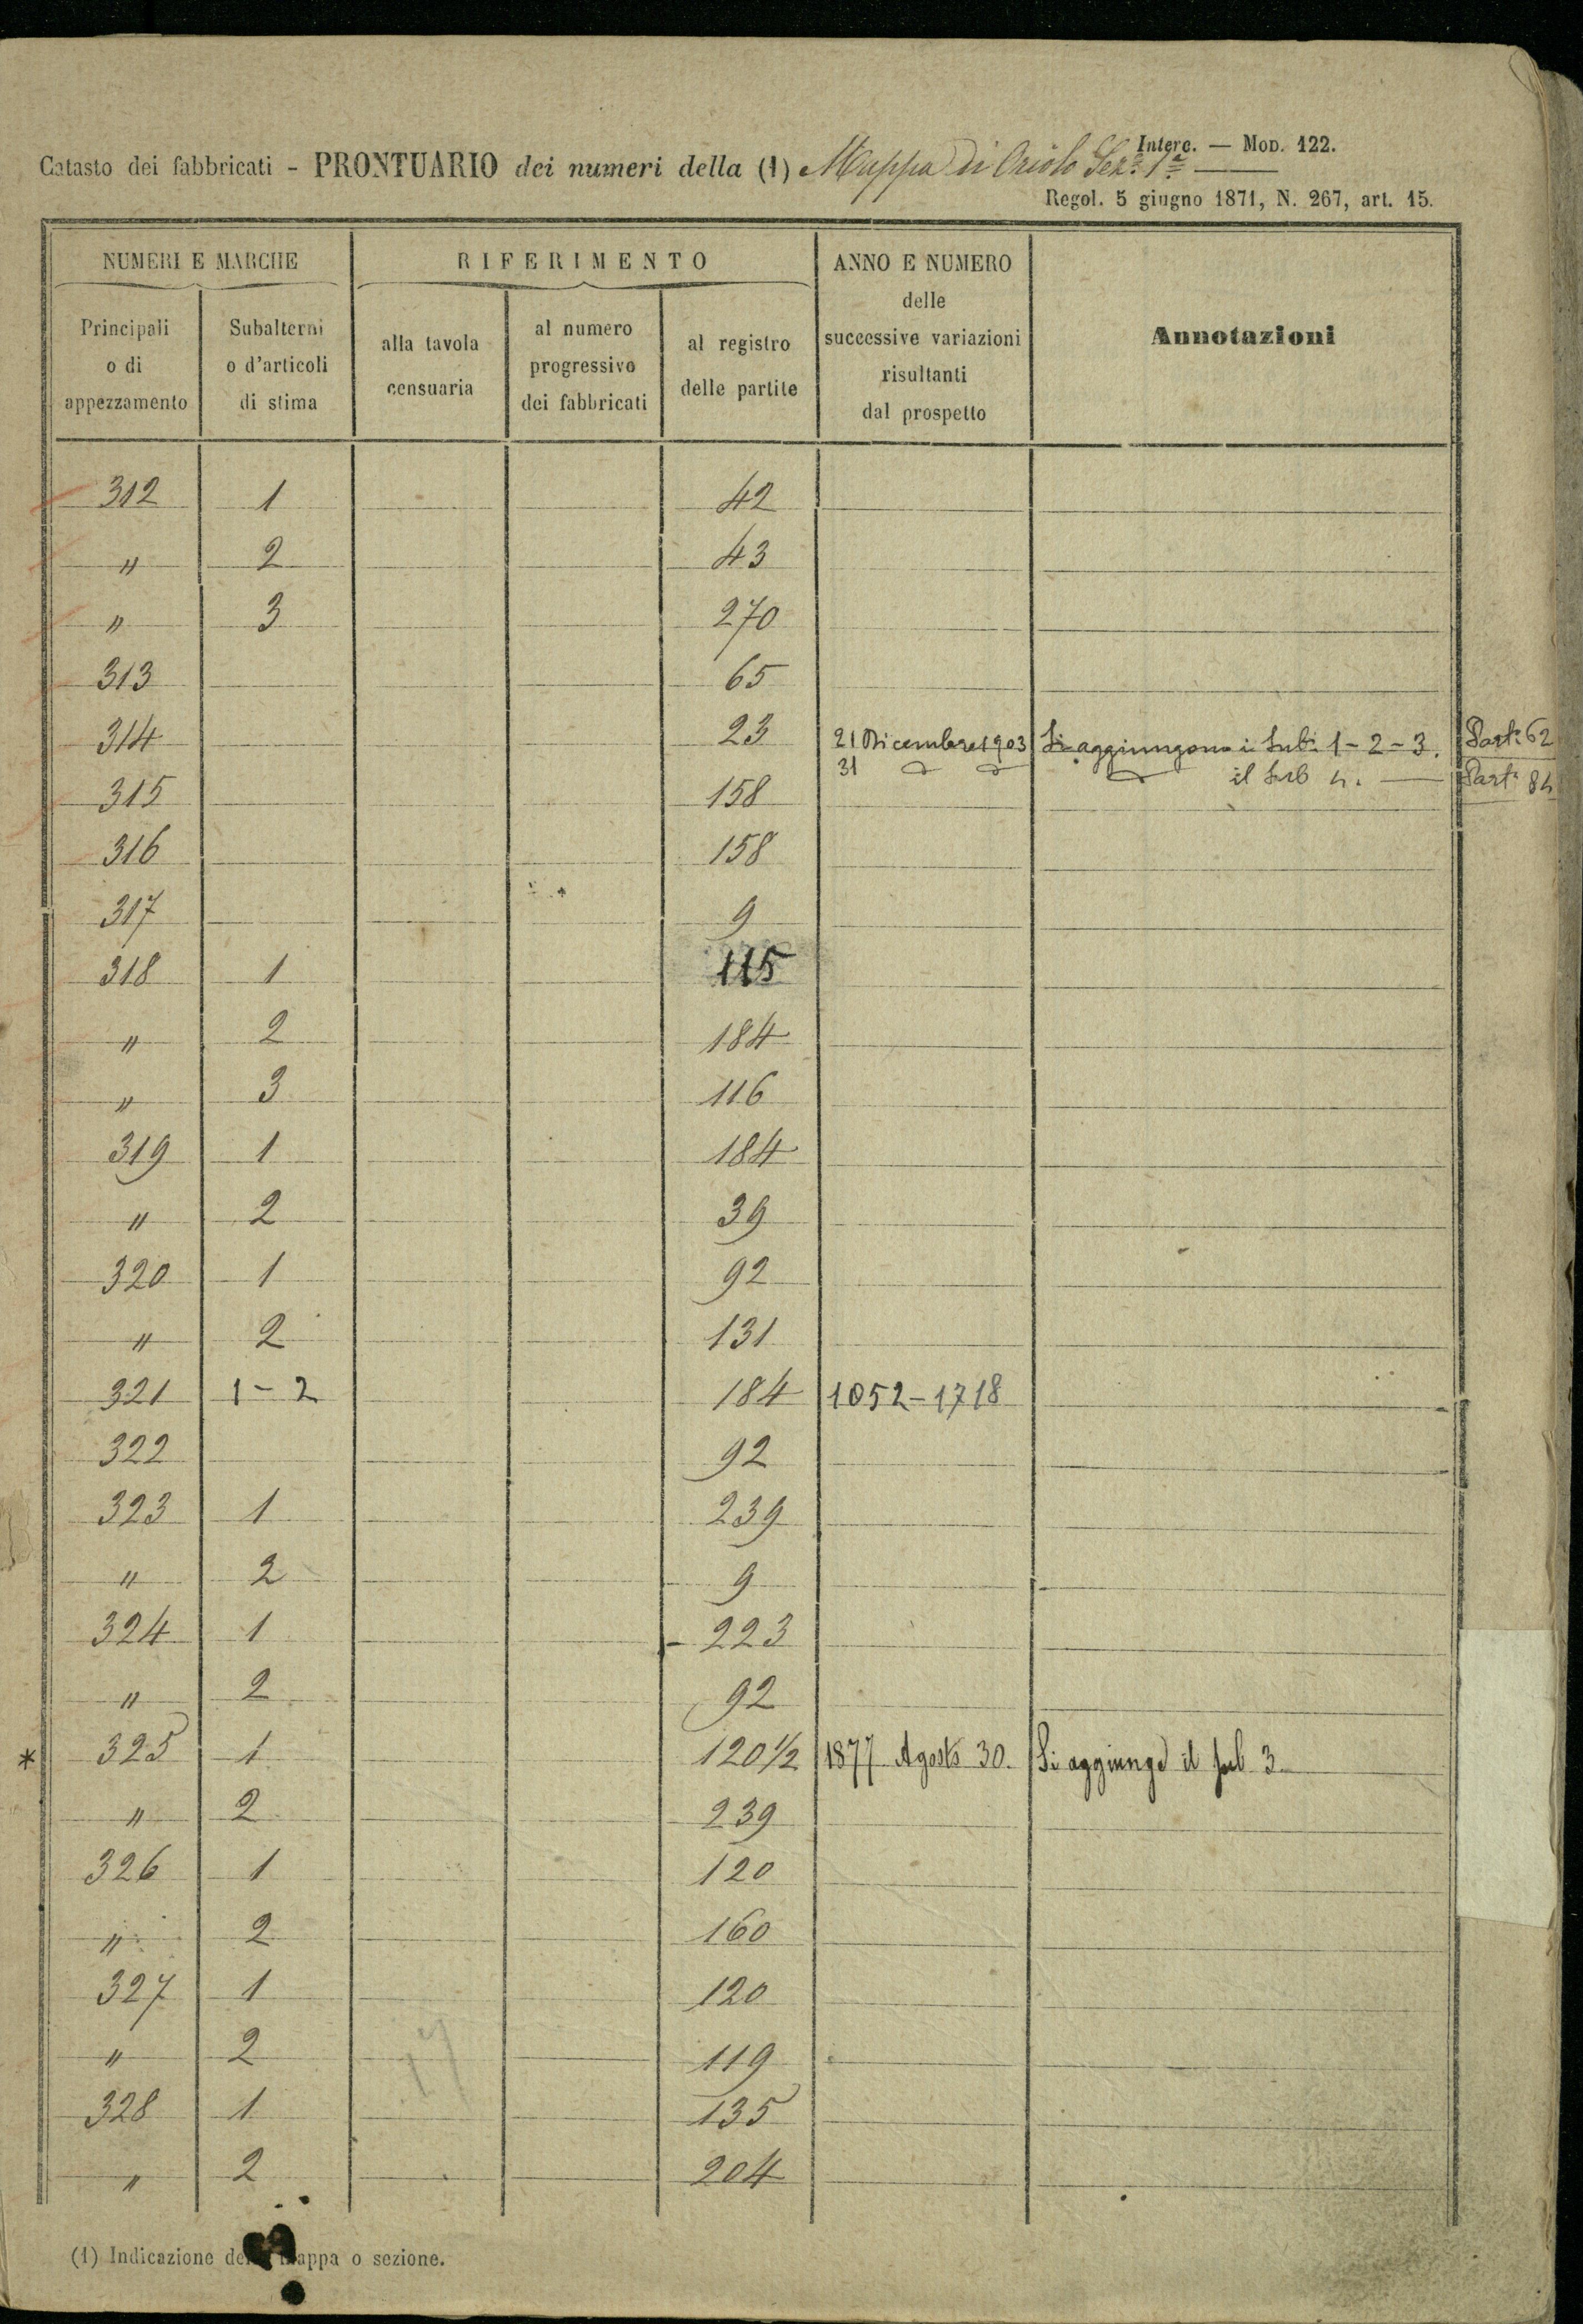 Interc. — Mod. 122.
Catasto dei fabbricati - PRONTUARIO dei numeri della (1) Mappa di Oriolo Sez.e 1.a
Regol. 5 giugno 1871, N. 267, art. 15.
NUMERI E MARCHE RIFERIMENTO ANNO E NUMERO delle successive variazioni risultanti dal prospetto Annotazioni
Principali o di appezzamento Subalterni o d'articoli di stima alla tavola censuaria al numero progressivo dei fabbricati al registro delle partite
312 1 42
" 2 43
" 3 270
313 65
314 23 21 Dicembre 1903 Si aggiungono i Sub.i 1-2-3. Part.a 62
31 " " " il Sub 4. Part.a 84
315 158
316 158
317 9
318 1 115
" 2 184
" 3 116
319 1 184
" 2 39
320 1 92
" 2 131
321 1-2 184 1052-1718
322 92
323 1 239
" 2 9
324 1 223
" 2 92
* 325 1 120 1/2 1877 Agosto 30. Si aggiunge il sub 3
" 2 239
326 1 120
" 2 160
327 1 120
" 2 119
328 1 135
" 2 204
(1) Indicazione della mappa o sezione.